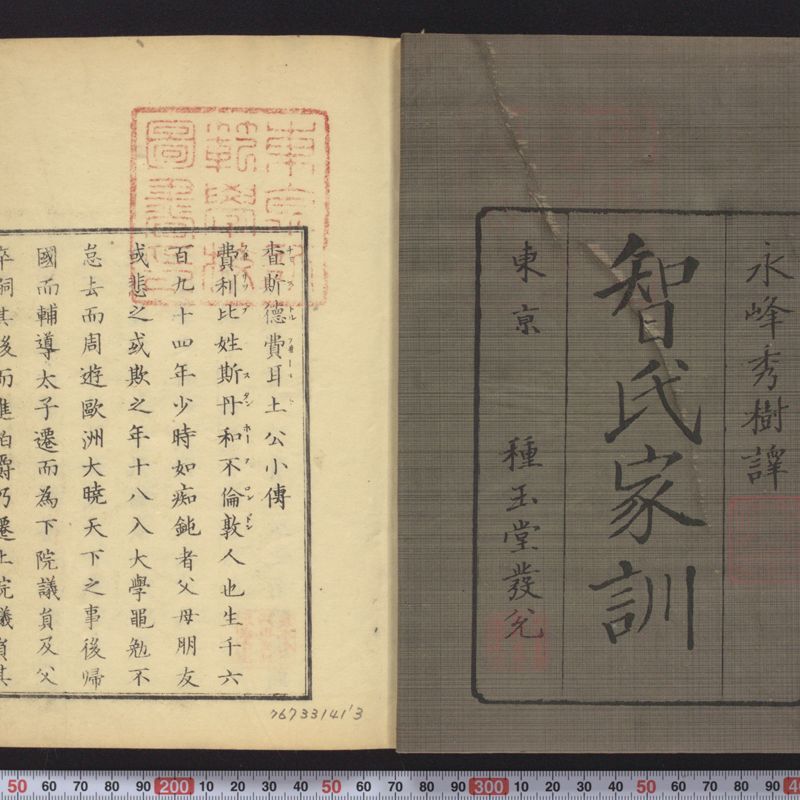 永峰秀樹譯
智氏家訓
東京 種玉堂發兌
査斯德費耳土公小傳
費利比姓斯丹和不倫敦人也生千六
百九十四年少時如痴鈍者父母朋友
或悲之或欺之年十八入大學黽勉不
怠去而周遊歐洲大曉天下之事後帰
國而輔導太子遷而為下院議負及父
卒嗣其後而進伯爵乃遷上院議負其
767331413
50 60 70 80 90 200 10 20 30 40 50 60 70 80 90 300 10 20 30 40 50 60 70 80 90